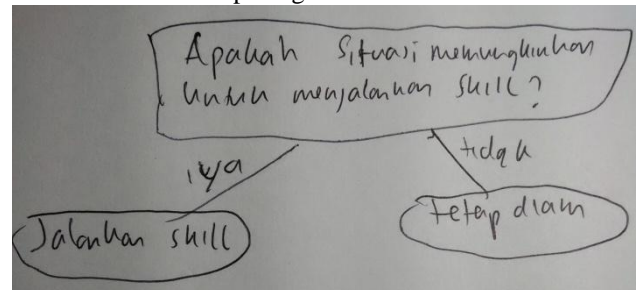 Apakah Situasi memungkinkan
untuk menjalankan skill?
iya
tidak
Jalankan skill
tetap diam